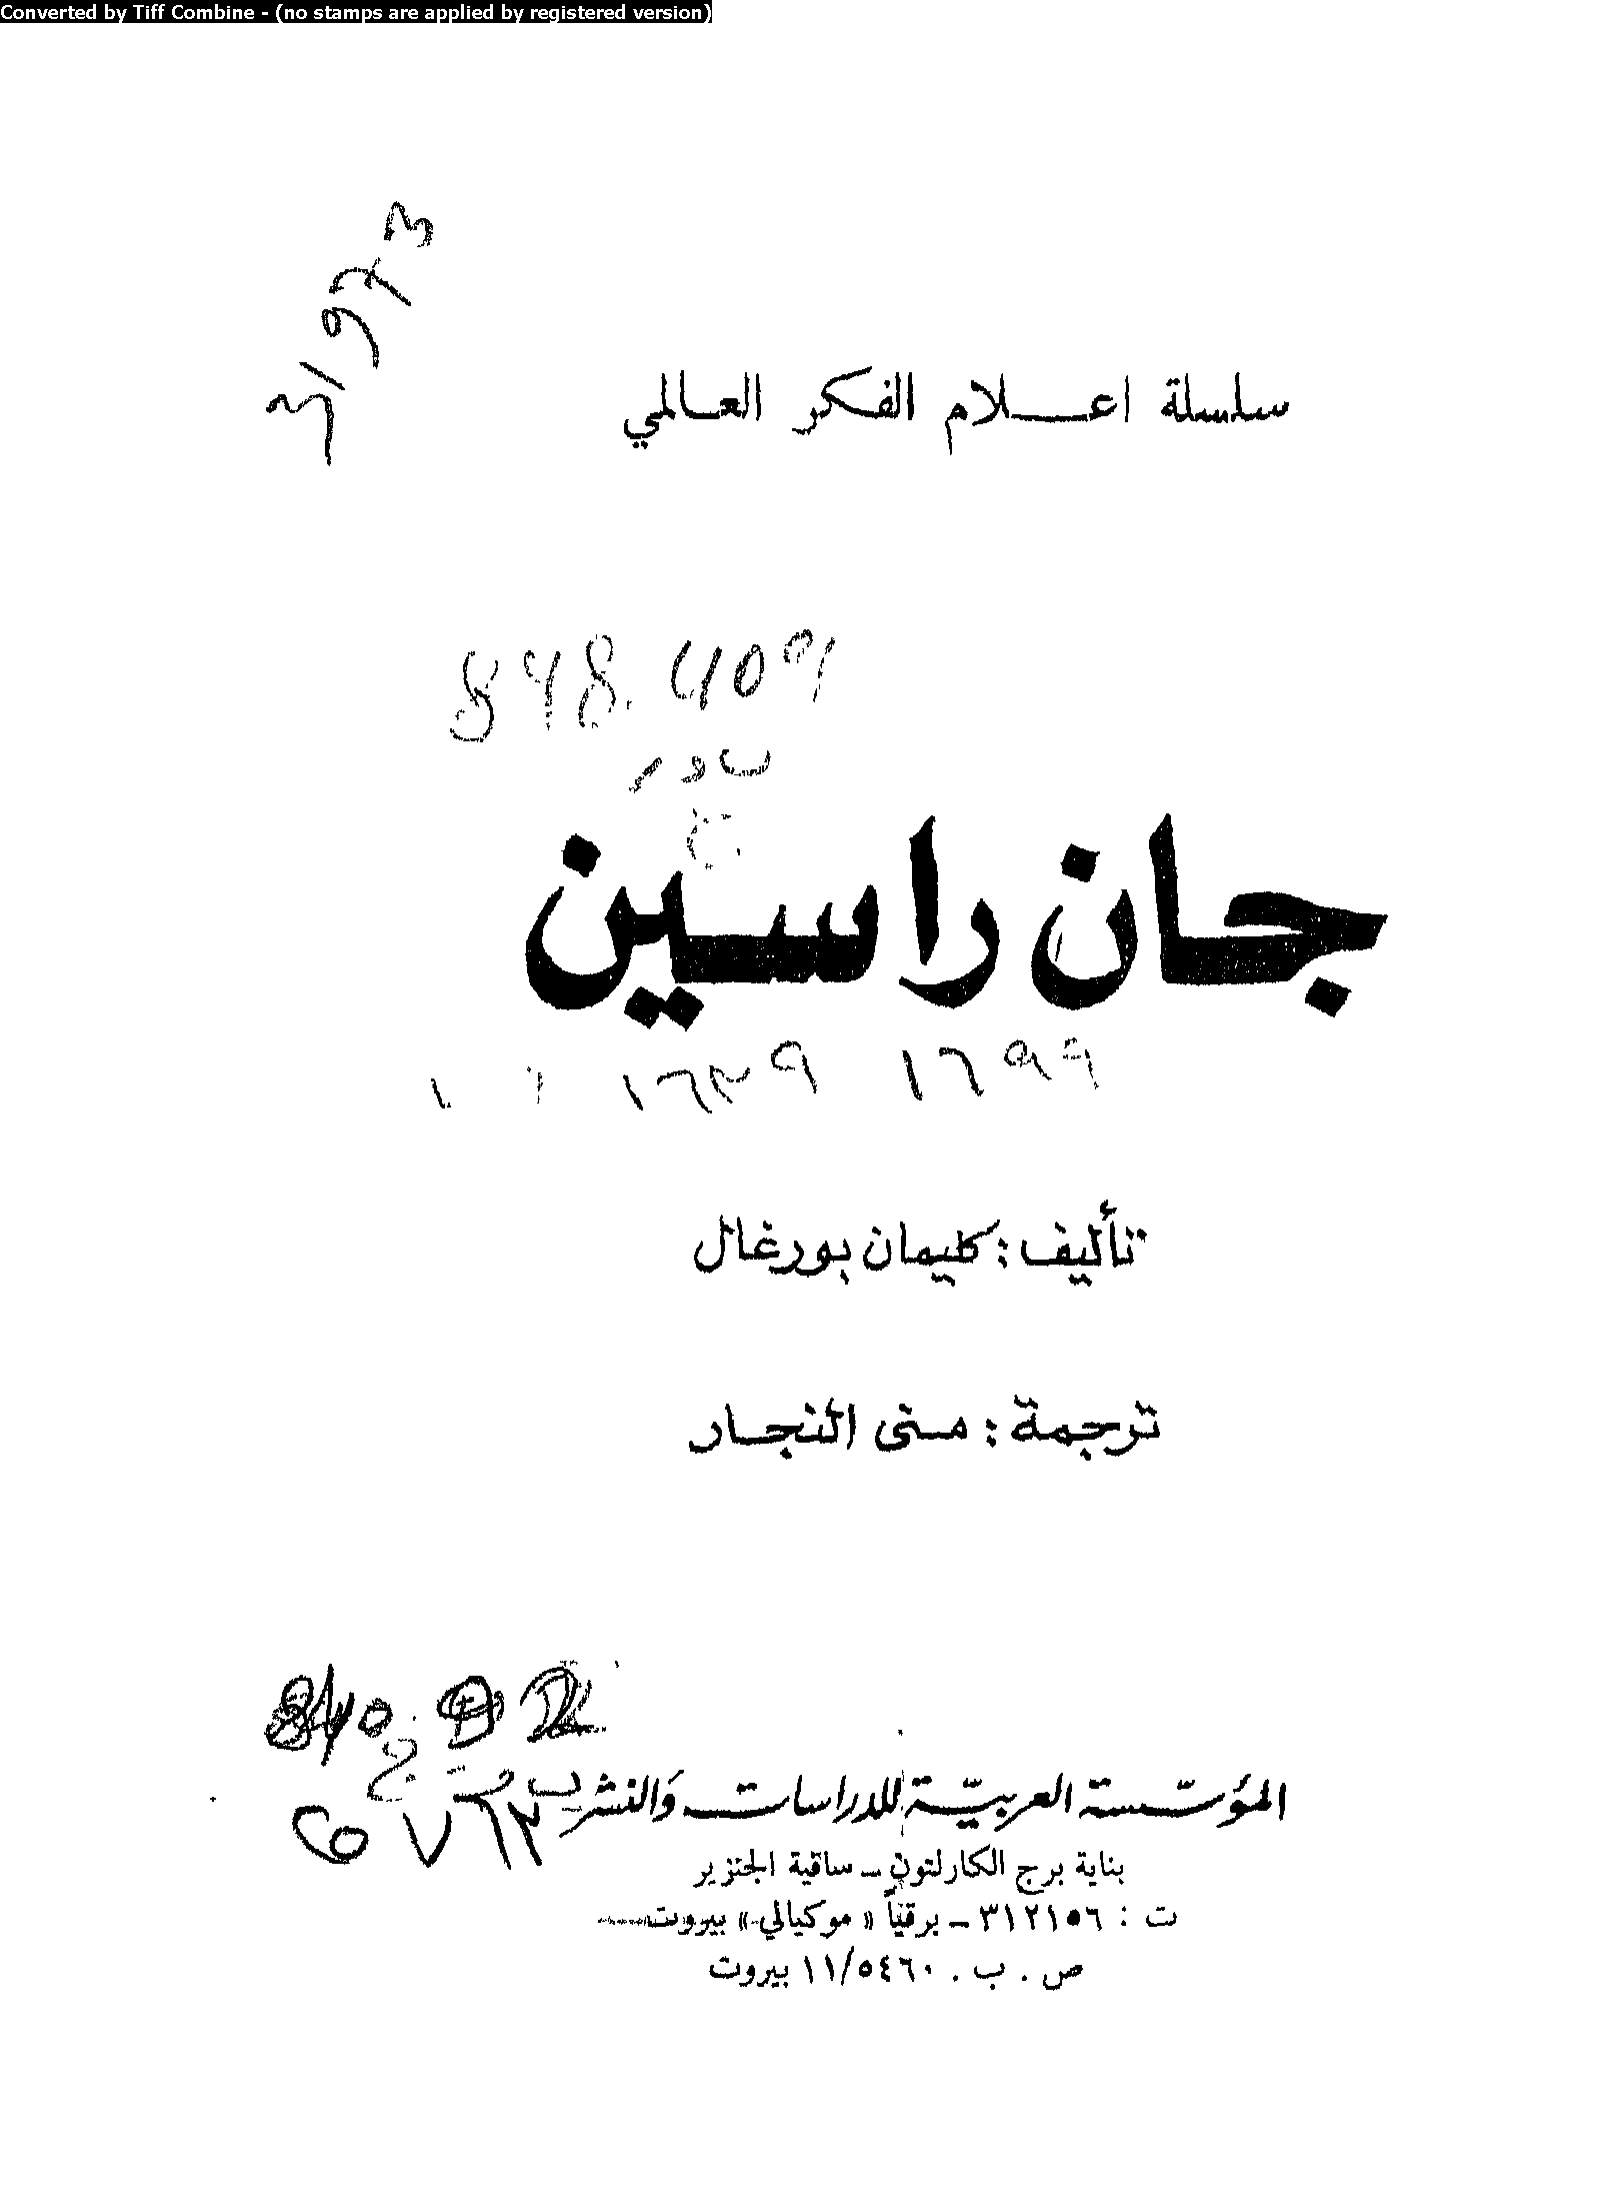 Converted by Tiff Combine - (no stamps are applied by registered version)
سلسلة اعـلام الفكر العالمي
848.409
جان راسين
١٦٣٩ ١٦٩٩
تأليف: كليمان بورغال
ترجمة: منى النجار
المؤسسة العربية للدراسات والنشر
بناية برج الكارلتون - ساقية الجنزير
ت : ٣١٢١٥٦ - برقياً « موكيالي » بيروت
ص . ب . ١١/٥٤٦٠ بيروت